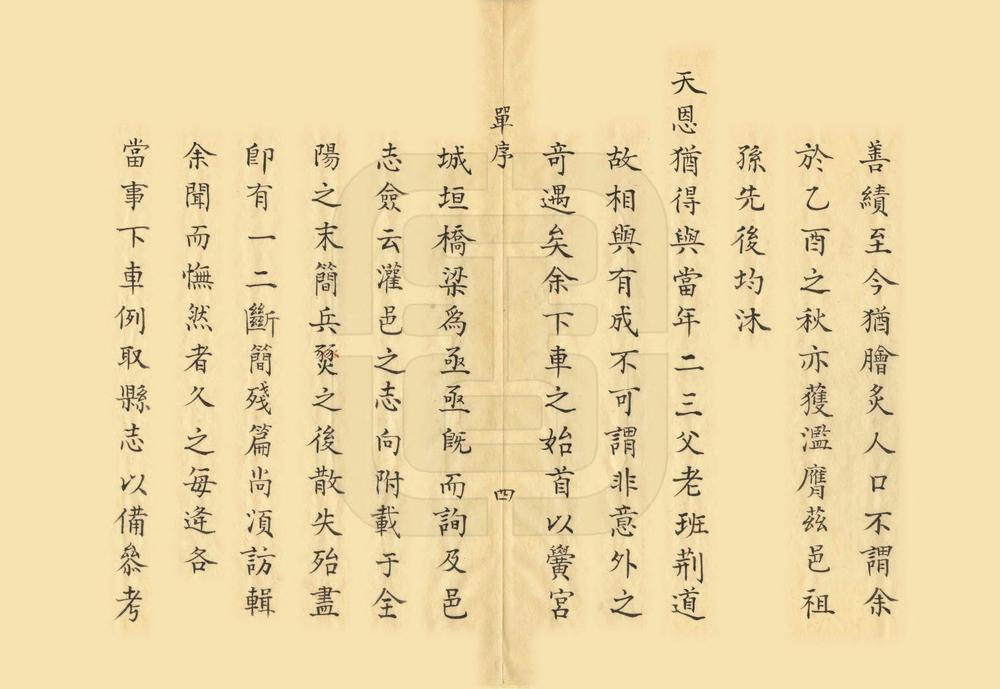 善績至今猶膾炙人口不謂余
於乙酉之秋亦獲濫膺茲邑祖
孫先後均沐
天恩猶得與當年二三父老班荆道
故相與有成不可謂非意外之
竒遇矣余下車之始首以黌宮
單序
四
城垣橋梁爲亟亟旣而詢及邑
志僉云灌邑之志向附載于全
陽之末簡兵燹之後散失殆盡
卽有一二斷簡殘篇尚湏訪輯
余聞而憮然者久之每逢各
當事下車例取縣志以備叅考